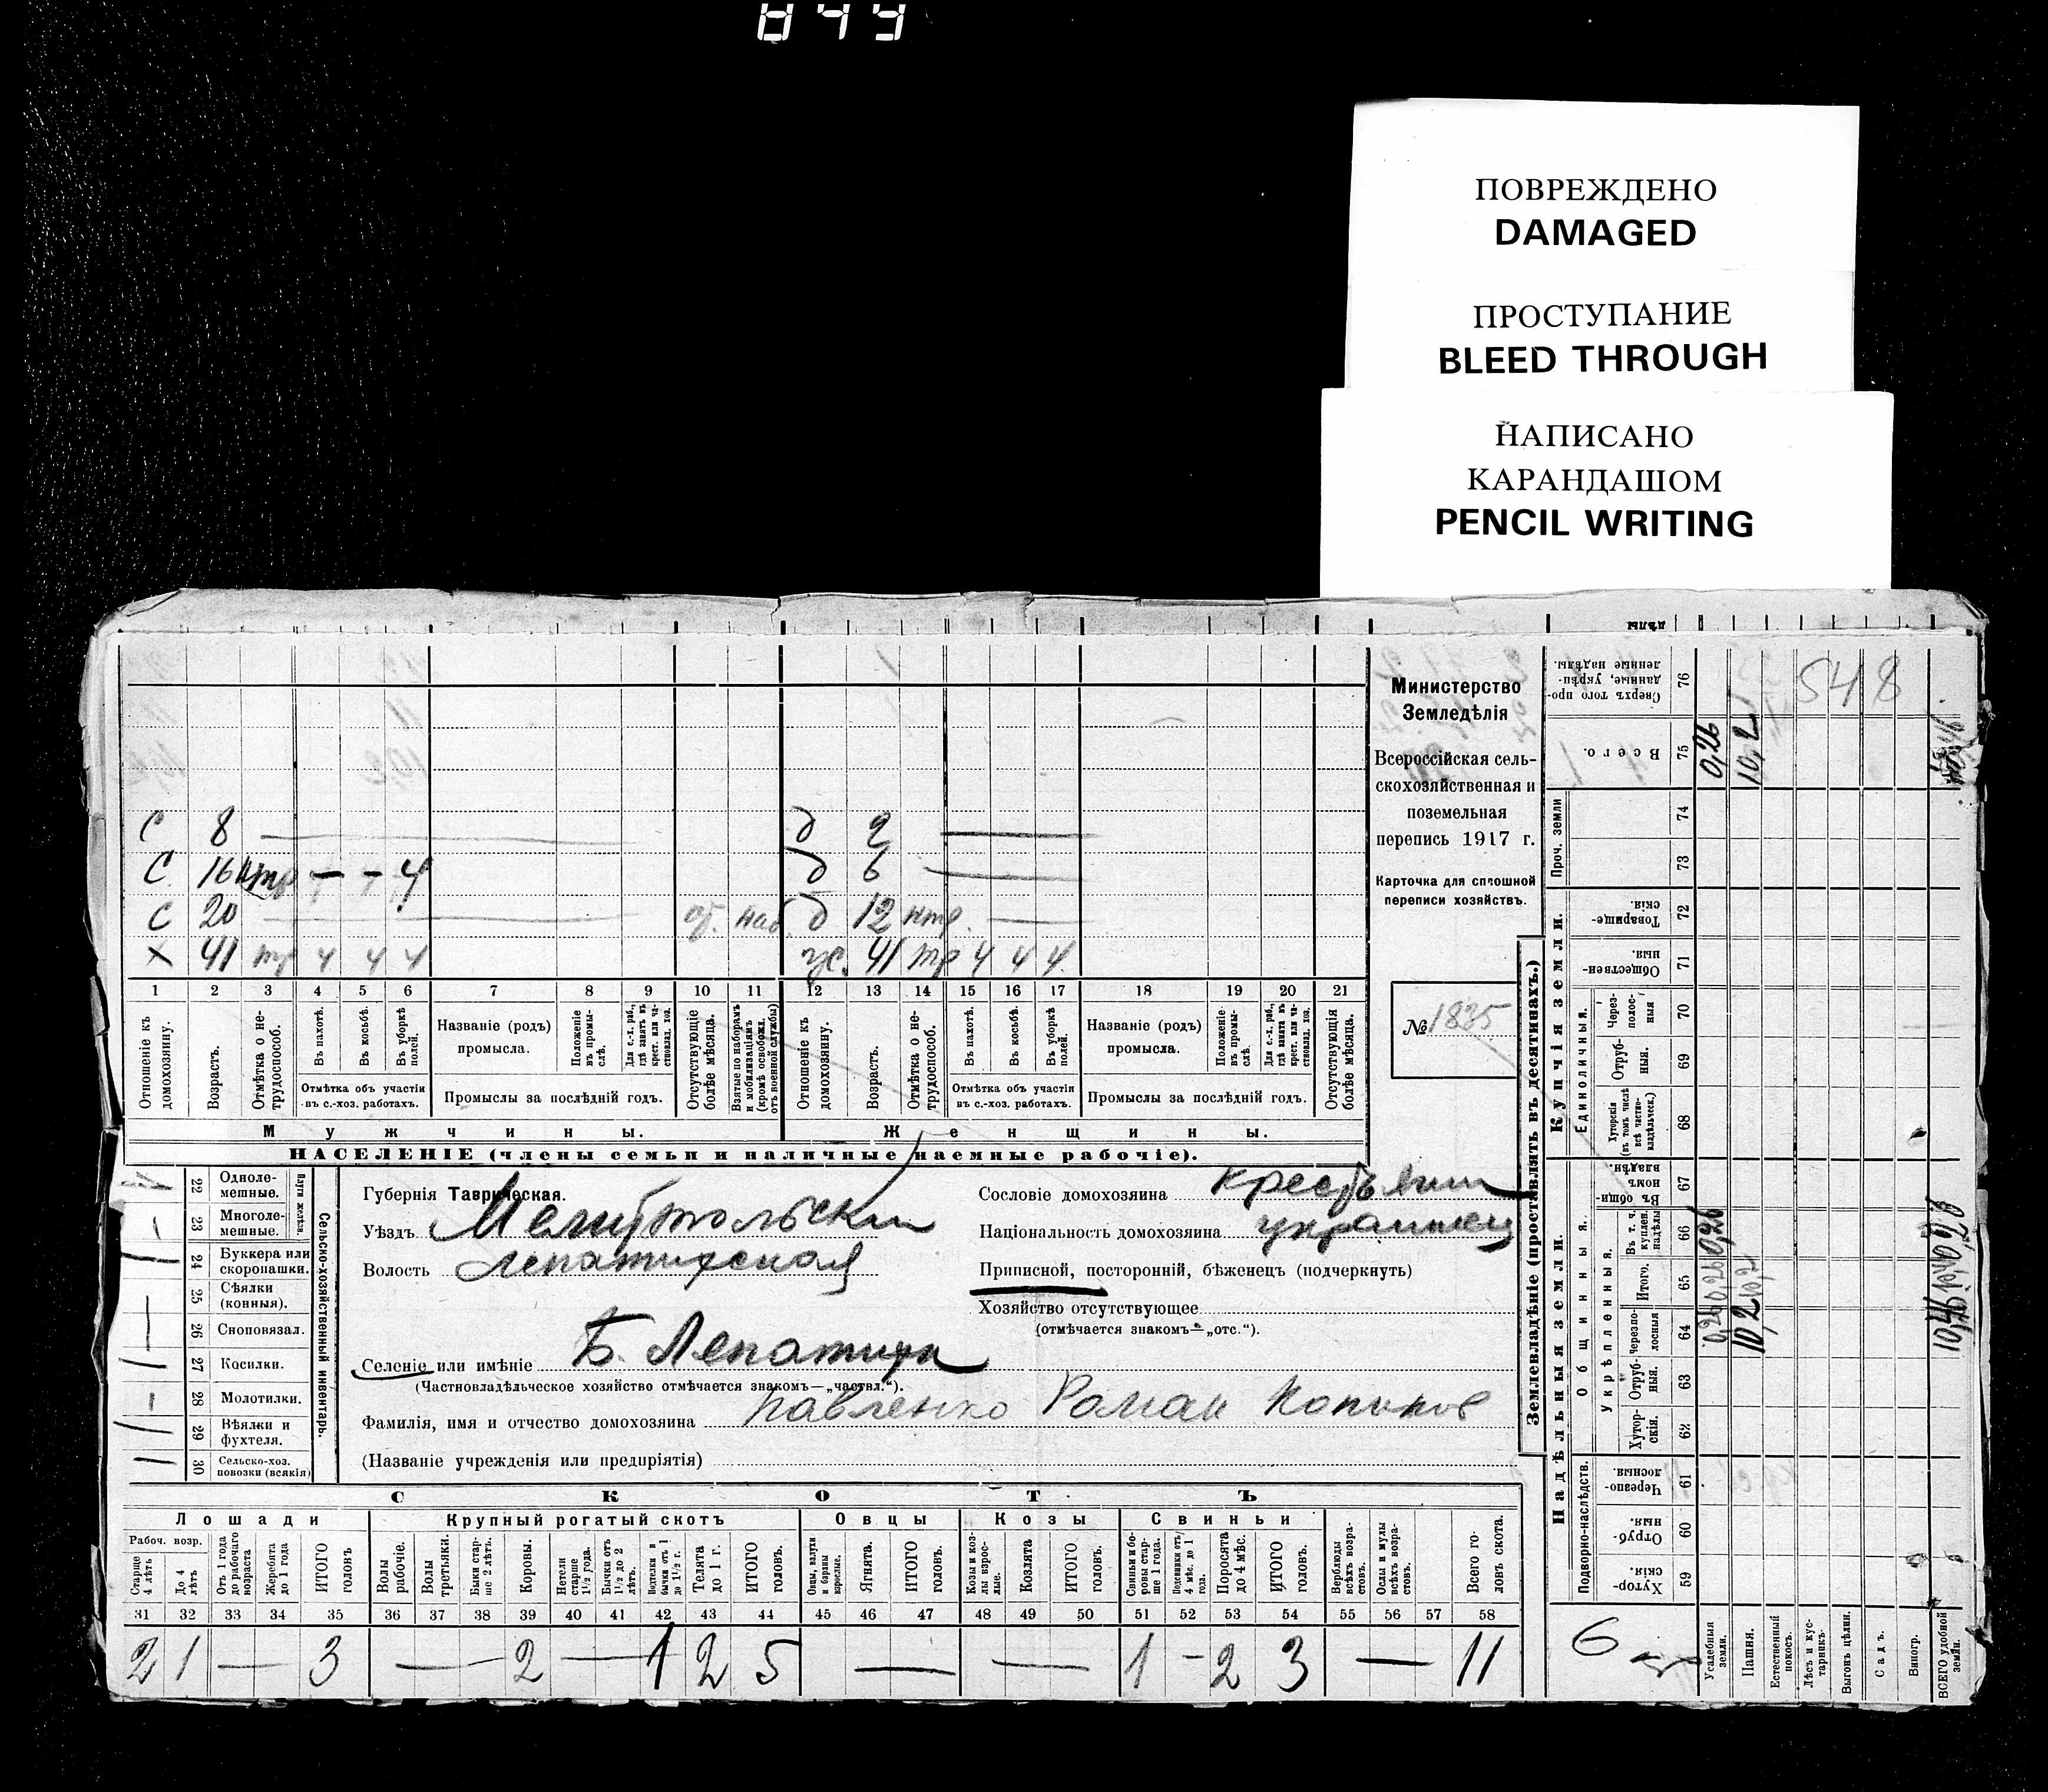 849
ПОВРЕЖДЕНО
DAMAGED
ПРОСТУПАНИЕ
BLEED THROUGH
НАПИСАНО
КАРАНДАШОМ
PENCIL WRITING
Министерство
Земледѣлія
Всероссійская сель-
скохозяйственная и
поземельная
перепись 1917 г.
Карточка для сплошной
переписи хозяйствъ.
№ 1835
С 8 — д 2 —
С. 16 нтр — - 4 д 6 —
С 20 — от. наб. д 12 нтр. —
х 41 тр 4 4 4 ж. 41 тр 4 4 4.
1 2 3 4 5 6 7 8 9 10 11 12 13 14 15 16 17 18 19 20 21
Отношеніе къ домохозяину.
Возрастъ.
Отмѣтка о не-трудоспособ.
Въ пахотѣ.
Въ косьбѣ.
Въ уборкѣ полей.
Отмѣтка объ участіи въ с.-хоз. работахъ.
Названіе (родъ) промысла.
Положеніе въ промы-слѣ.
Для с.-х. раб., гдѣ занятъ въ крест. или ча-ствовлад. хоз.
Промыслы за послѣдній годъ.
Отсутствующіе болѣе мѣсяца.
Взятые по наборамъ и мобилизаціямъ (кромѣ освобожд. отъ военной службы)
Отношеніе къ домохозяину.
Возрастъ.
Отмѣтка о не-трудоспособ.
Въ пахотѣ.
Въ косьбѣ.
Въ уборкѣ полей.
Отмѣтка объ участіи въ с.-хоз. работахъ.
Названіе (родъ) промысла.
Положеніе въ промы-слѣ.
Для с.-х. раб., гдѣ занята въ крест. или ча-ствовлад. хоз.
Промыслы за послѣдній годъ.
Отсутствующія болѣе мѣсяца.
Мужчины. Женщины.
НАСЕЛЕНІЕ (члены семьи и наличные наемные рабочіе).
Сельско-хозяйственный инвентарь.
Плуги желѣз.
22 Одноле-мешные.
23 Многоле-мешные.
24 Буккера или скоропашки.
25 Сѣялки (конныя).
26 Сноповязал.
27 Косилки.
28 Молотилки.
29 Вѣялки и фухтеля.
30 Сельско-хоз. повозки (всякія)
Губернія Таврическая.
Уѣздъ Мелитопольскій
Волость Лепатихская
Селеніе или имѣніе Б. Лепатиха
(Частновладѣльческое хозяйство отмѣчается знакомъ—„частвл.“).
Фамилія, имя и отчество домохозяина Павленко Роман
(Названіе учрежденія или предпріятія)
Сословіе домохозяина крестьянин
Національность домохозяина украинец
Приписной, посторонній, бѣженецъ (подчеркнуть)
Хозяйство отсутствующее
(отмѣчается знакомъ—„отс.“).
СКОТЪ
Лошади Крупный рогатый скотъ Овцы Козы Свиньи
Рабоч. возр.
Старше 4 лѣтъ
До 4 лѣтъ
Отъ 1 года до рабочаго возраста
Жеребята до 1 года
ИТОГО головъ
Волы рабочіе.
Волы третьяки.
Быки стар-ше 2 лѣтъ.
Коровы.
Нетели старше 1½ года.
Бычки отъ 1½ до 2 лѣтъ.
Подтелки и бычки отъ 1 до 1½ г.
Телята до 1 г.
ИТОГО головъ.
Овцы, валухи и бараны взрослые.
Ягнята.
ИТОГО головъ.
Козы и коз-лы взрос-лые.
Козлята
ИТОГО головъ.
Свиньи и бо-ровы стар-ше 1 года.
Подсвинки отъ 4 мѣс. до 1 года.
Поросята до 4 мѣс.
ИТОГО головъ.
Верблюды всѣхъ возра-стовъ.
Ослы и мулы всѣхъ возра-стовъ.
Всего го-ловъ скота.
31 32 33 34 35 36 37 38 39 40 41 42 43 44 45 46 47 48 49 50 51 52 53 54 55 56 57 58
2 1 — 3 — 2 — 1 2 5 — — 1 - 2 3 — 11
Землевладѣніе (проставлять въ десятинахъ.)
Купчія земли.
Надѣльныя земли.
76 Сверхъ того про-данные, укрѣп-ленные надѣлы. 548
75 Всего. 0,26 10,2
Проч. земли
74
73
72 Товарище-скія
71 Обществен-ныя
Единоличныя.
70 Через-полос-ныя
69 Отруб-ныя.
68 Хуторскія (въ томъ числѣ всѣ частно-владѣльческ.)
Общинныя.
67 Въ общи-номъ владѣн.
Укрѣпленныя.
66 Въ т. ч. куплен. надѣлы 0,26
65 Итого.
64 Черезпо-лосныя 10,2
63 Отруб-ныя.
62 Хутор-скія.
Подворно-наслѣдств.
61 Черезпо-лосныя
60 Отруб-ныя.
59 Хутор-скія
6
Усадебныя земли.
Пашня.
Естественный покосъ.
Лѣсъ и кус-тарникъ.
Выгонъ цѣлин.
Садъ.
Виногр.
ВСЕГО удобной земли.